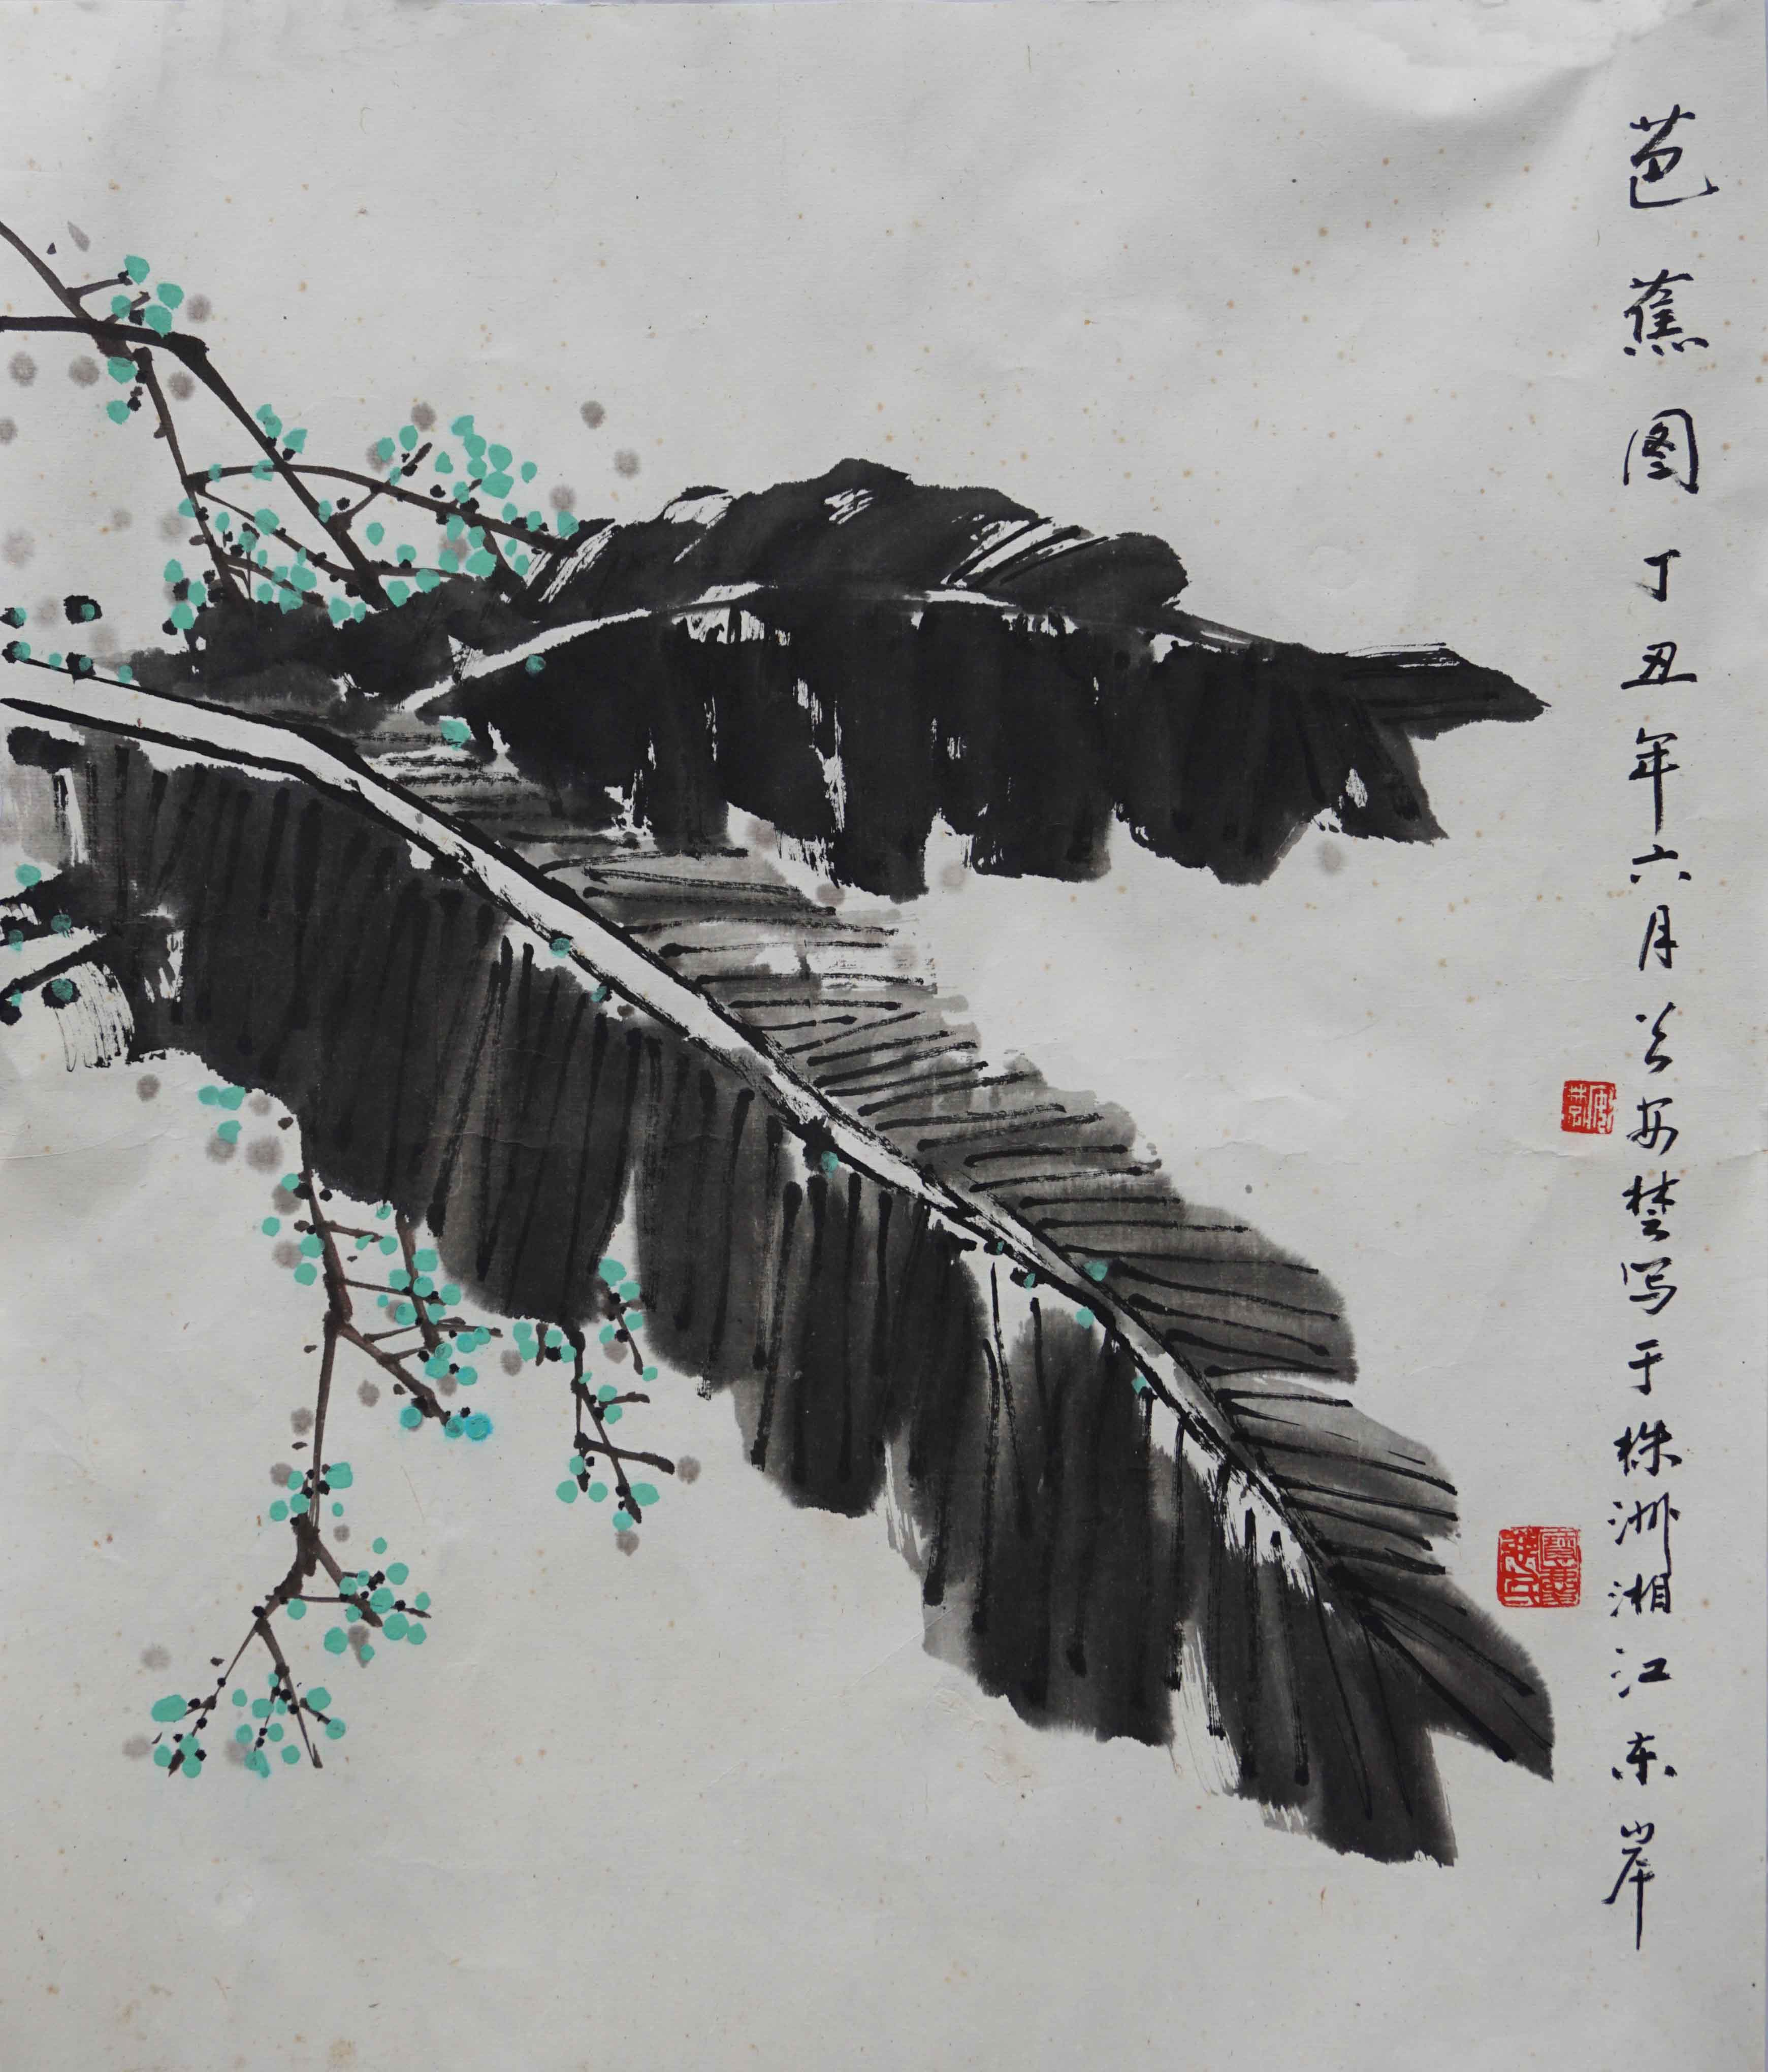 芭蕉图丁丑年六月兰安楚写于株洲湘江东岸